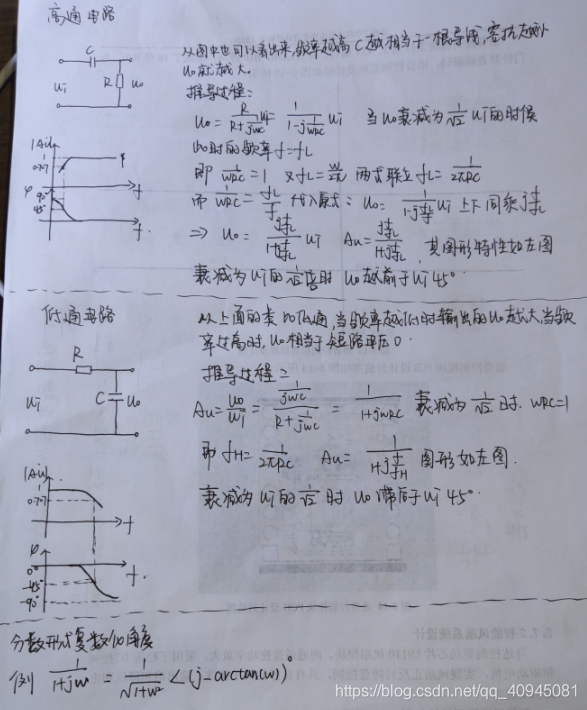 高通电路
C
Ui
R
Uo
|Au|
1
0.707
f
φ
90°
45°
f
从图中也可以看出来,频率越高C越相当于一根导线,容抗越小
Uo就越大。
推导过程:
Uo = R/(R+1/jwc) Ui = 1/(1-j1/wRC) Ui 当Uo衰减为1/√2 Ui的时候
Uo时的频率f=fL
即 1/wRC = 1 又fL = w/2π 两式联立 fL = 1/2πRC
而 1/wRC = fL/f 代入原式: Uo = 1/(1-j fL/f) Ui 上下同乘j f/fL
⇒ Uo = (j f/fL)/(1+j f/fL) Ui Au = (j f/fL)/(1+j f/fL), 其图形特性如左图
衰减为Ui的1/√2倍时 Uo超前于Ui 45°.
低通电路
R
Ui
C
Uo
|Au|
1
0.707
f
φ
0°
-45°
-90°
f.
从上面的类似低通,当频率越低时输出的Uo越大,当频
率过高时,Uo相当于短路电压0.
推导过程:
Au = Uo/Ui = (1/jwc)/(R+1/jwc) = 1/(1+jwRC) 衰减为1/√2时. wRC=1
即fH = 1/2πRC Au = 1/(1+j f/fH) 图形如左图.
衰减为Ui的1/√2时 Uo滞后于Ui 45°.
分数形式复数的角度
例 1/(1+jw) = 1/√(1+w²) <(j-arctan(w))°
https://blog.csdn.net/qq_40945081